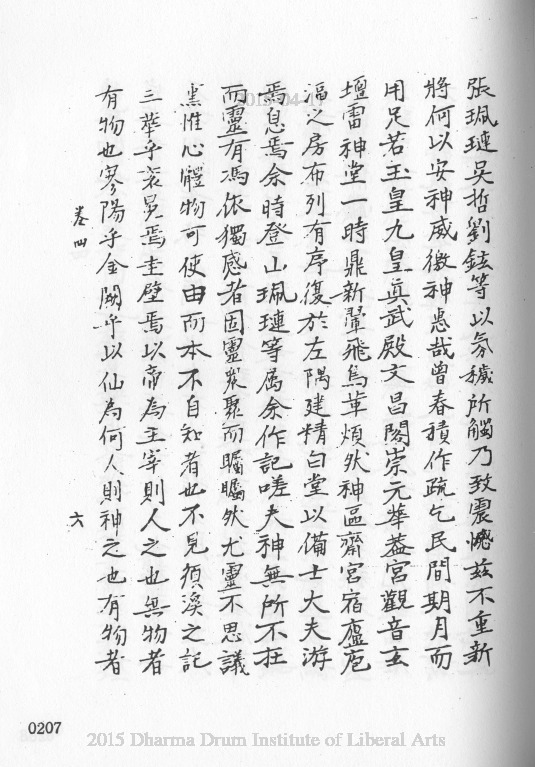 張珮璉吳哲劉鉉等以氛穢所觸乃致震怒茲不重新
將何以安神威徼神惠哉曾春積作疏乞民間期月而
用足若玉皇九皇真武殿文昌閣崇元華蓋宮觀音玄
壇雷神堂一時鼎新翬飛鳥革煩然神區齋宮宿廬庖
湢之房布列有序復於左隅建精白堂以備士大夫游
焉息焉余時登山珮璉等屬余作記嗟夫神無所不在
而靈有馮依獨感者固靈眾聚而矚矚然尤靈不思議
熏惟心體物可使由而本不自知者也不見須溪之記
三華乎袞冕焉圭璧焉以帝為主宰則人之也無物者
有物也寥陽乎金闕乎以仙為何人則神之也有物者
卷四
六
0207
2015 Dharma Drum Institute of Liberal Arts